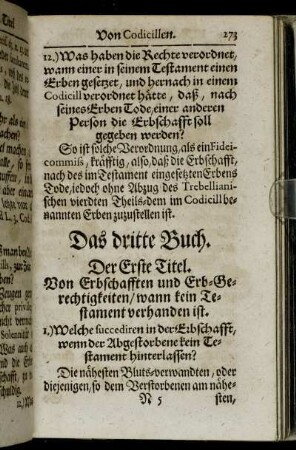 Von Codicillen. 273
12.) Was haben die Rechte verordnet,
wann einer in seinem Testament einen
Erben gesetzet, und hernach in einem
Codicill verordnet hätte, daß, nach
seines Erben Tode, einer anderen
Person die Erbschafft soll
gegeben werden?
So ist solche Verordnung, als ein Fidei-
commiß, kräfftig, also, daß die Erbschafft,
nach des im Testament eingesetzten Erbens
Tode, iedoch ohne Abzug des Trebelliani-
schen vierdten Theils, dem im Codicill be-
nannten Erben zuzustellen ist.
Das dritte Buch.
Der Erste Titel.
Von Erbschafften und Erb-Ge-
rechtigkeiten/ wann kein Te-
stament verhanden ist.
1.) Welche succediren in der Erbschafft,
wenn der Abgestorbene kein Te-
stament hinterlassen?
Die nähesten Bluts-verwandten, oder
diejenigen, so dem Verstorbenen am nähe-
N 5 sten,